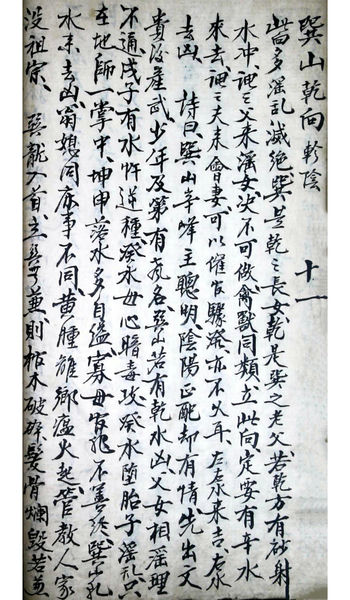 巽山乾向軫陰 十一
皆多淫乱滅絶巽是乾之長女乾是巽之老父若乾方有砂射
水冲謂之父来淫女决不可做禽獸同類立此向定要有辛水
來去謂之夫来會妻可以催官驟發亦不久耳左水来吉右水
去凶 詩曰巽山辛峰主聰明陰陽正配却有情先出文
貴後產武少年及第有名巽山若有乾水凶父女相淫理
不通戌子有水忤逆種癸水母心暗毒攻癸水墮胎子淫乱只
在地師一掌中坤申落水多自縊寡母官非不善终巽山乾
水来去凶翁媳同床事不同黄腫離鄉瘟火起管教人家
没祖宗 巽龍入首立巽可兼則棺木破碎髮骨爛毀若兼